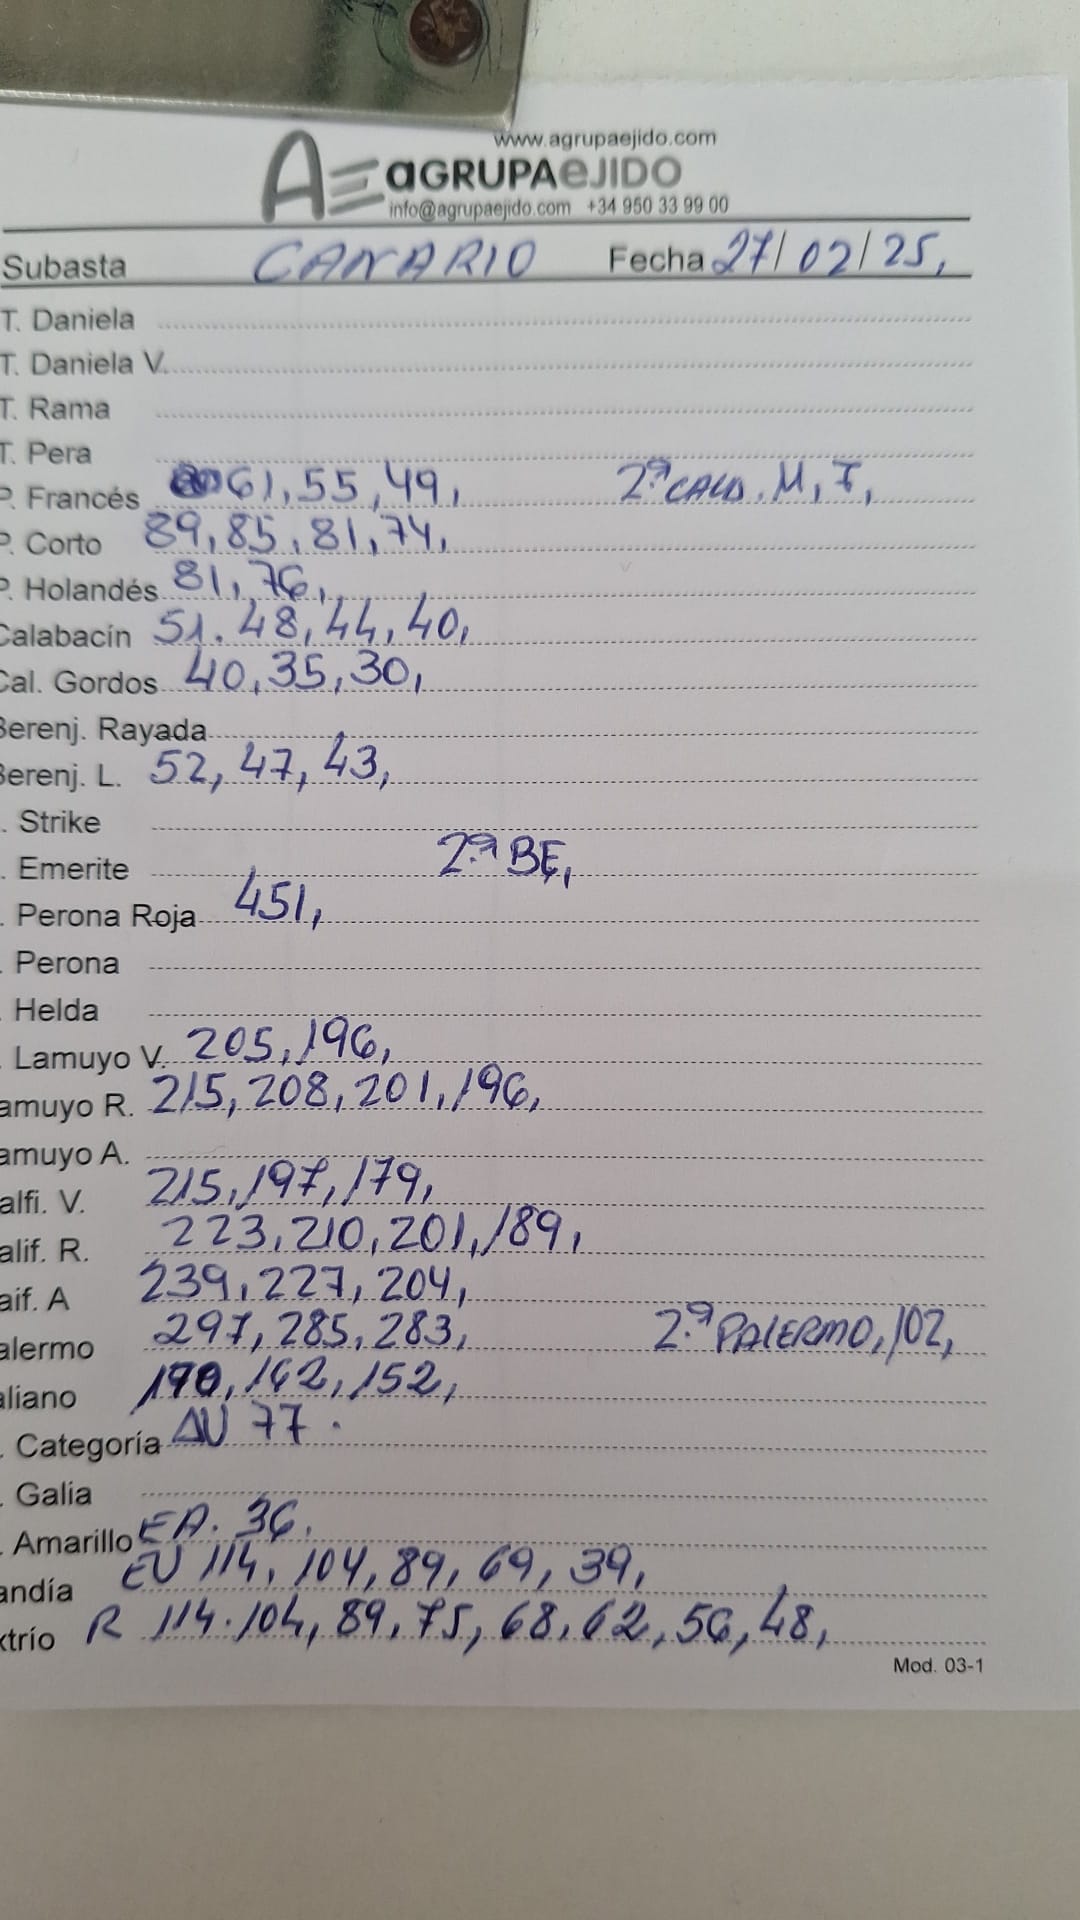 www.agrupaejido.com
AE aGRUPAeJIDO
info@agrupaejido.com +34 950 33 99 00
Subasta CANARIO Fecha 27/02/25,
T. Daniela
T. Daniela V.
T. Rama
T. Pera
P. Francés 61, 55, 49, 2ª CALD. M, F,
P. Corto 89, 85, 81, 74,
P. Holandés 81, 76,
Calabacín 51. 48, 44, 40,
Cal. Gordos 40, 35, 30,
Berenj. Rayada
Berenj. L. 52, 47, 43,
. Strike
. Emerite 2.ª BE,
. Perona Roja 451,
. Perona
. Helda
. Lamuyo V. 205, 196,
amuyo R. 215, 208, 201, 196,
amuyo A.
alfi. V. 215, 197, 179,
alif. R. 223, 210, 201, 189,
aif. A 239, 227, 204,
alermo 297, 285, 283, 2.ª PALERMO, 102,
aliano 162, 152,
. Categoría AU 77.
. Galia
. Amarillo EA. 36.
andía EU 114, 104, 89, 69, 39,
xtrío R 114. 104, 89, 75, 68, 62, 56, 48,
Mod. 03-1